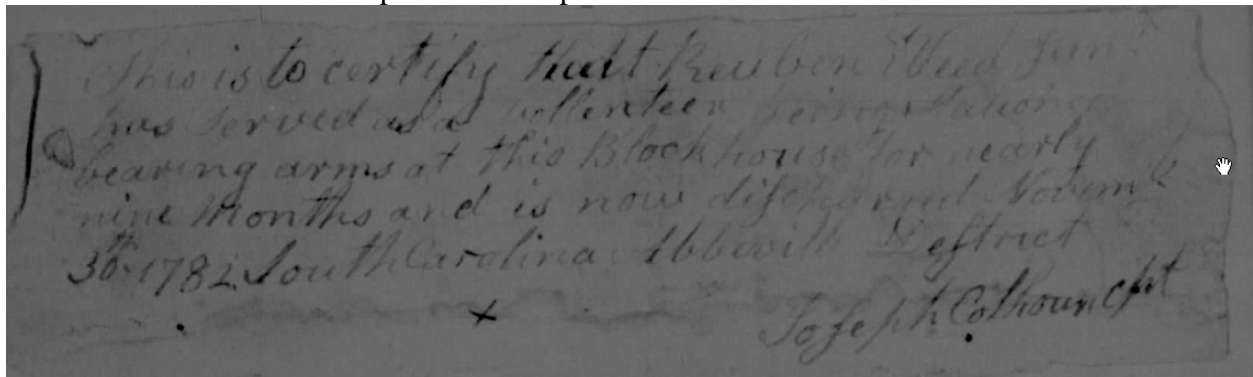 This is to certify that Reuben Weed Junr
has served as a vollenteer being
bearing arms at this Blockhouse for nearly
nine Months and is now discharged Novemb
30th 1782 South Carolina Abbevill Destrict
Joseph Calhoun Cpt